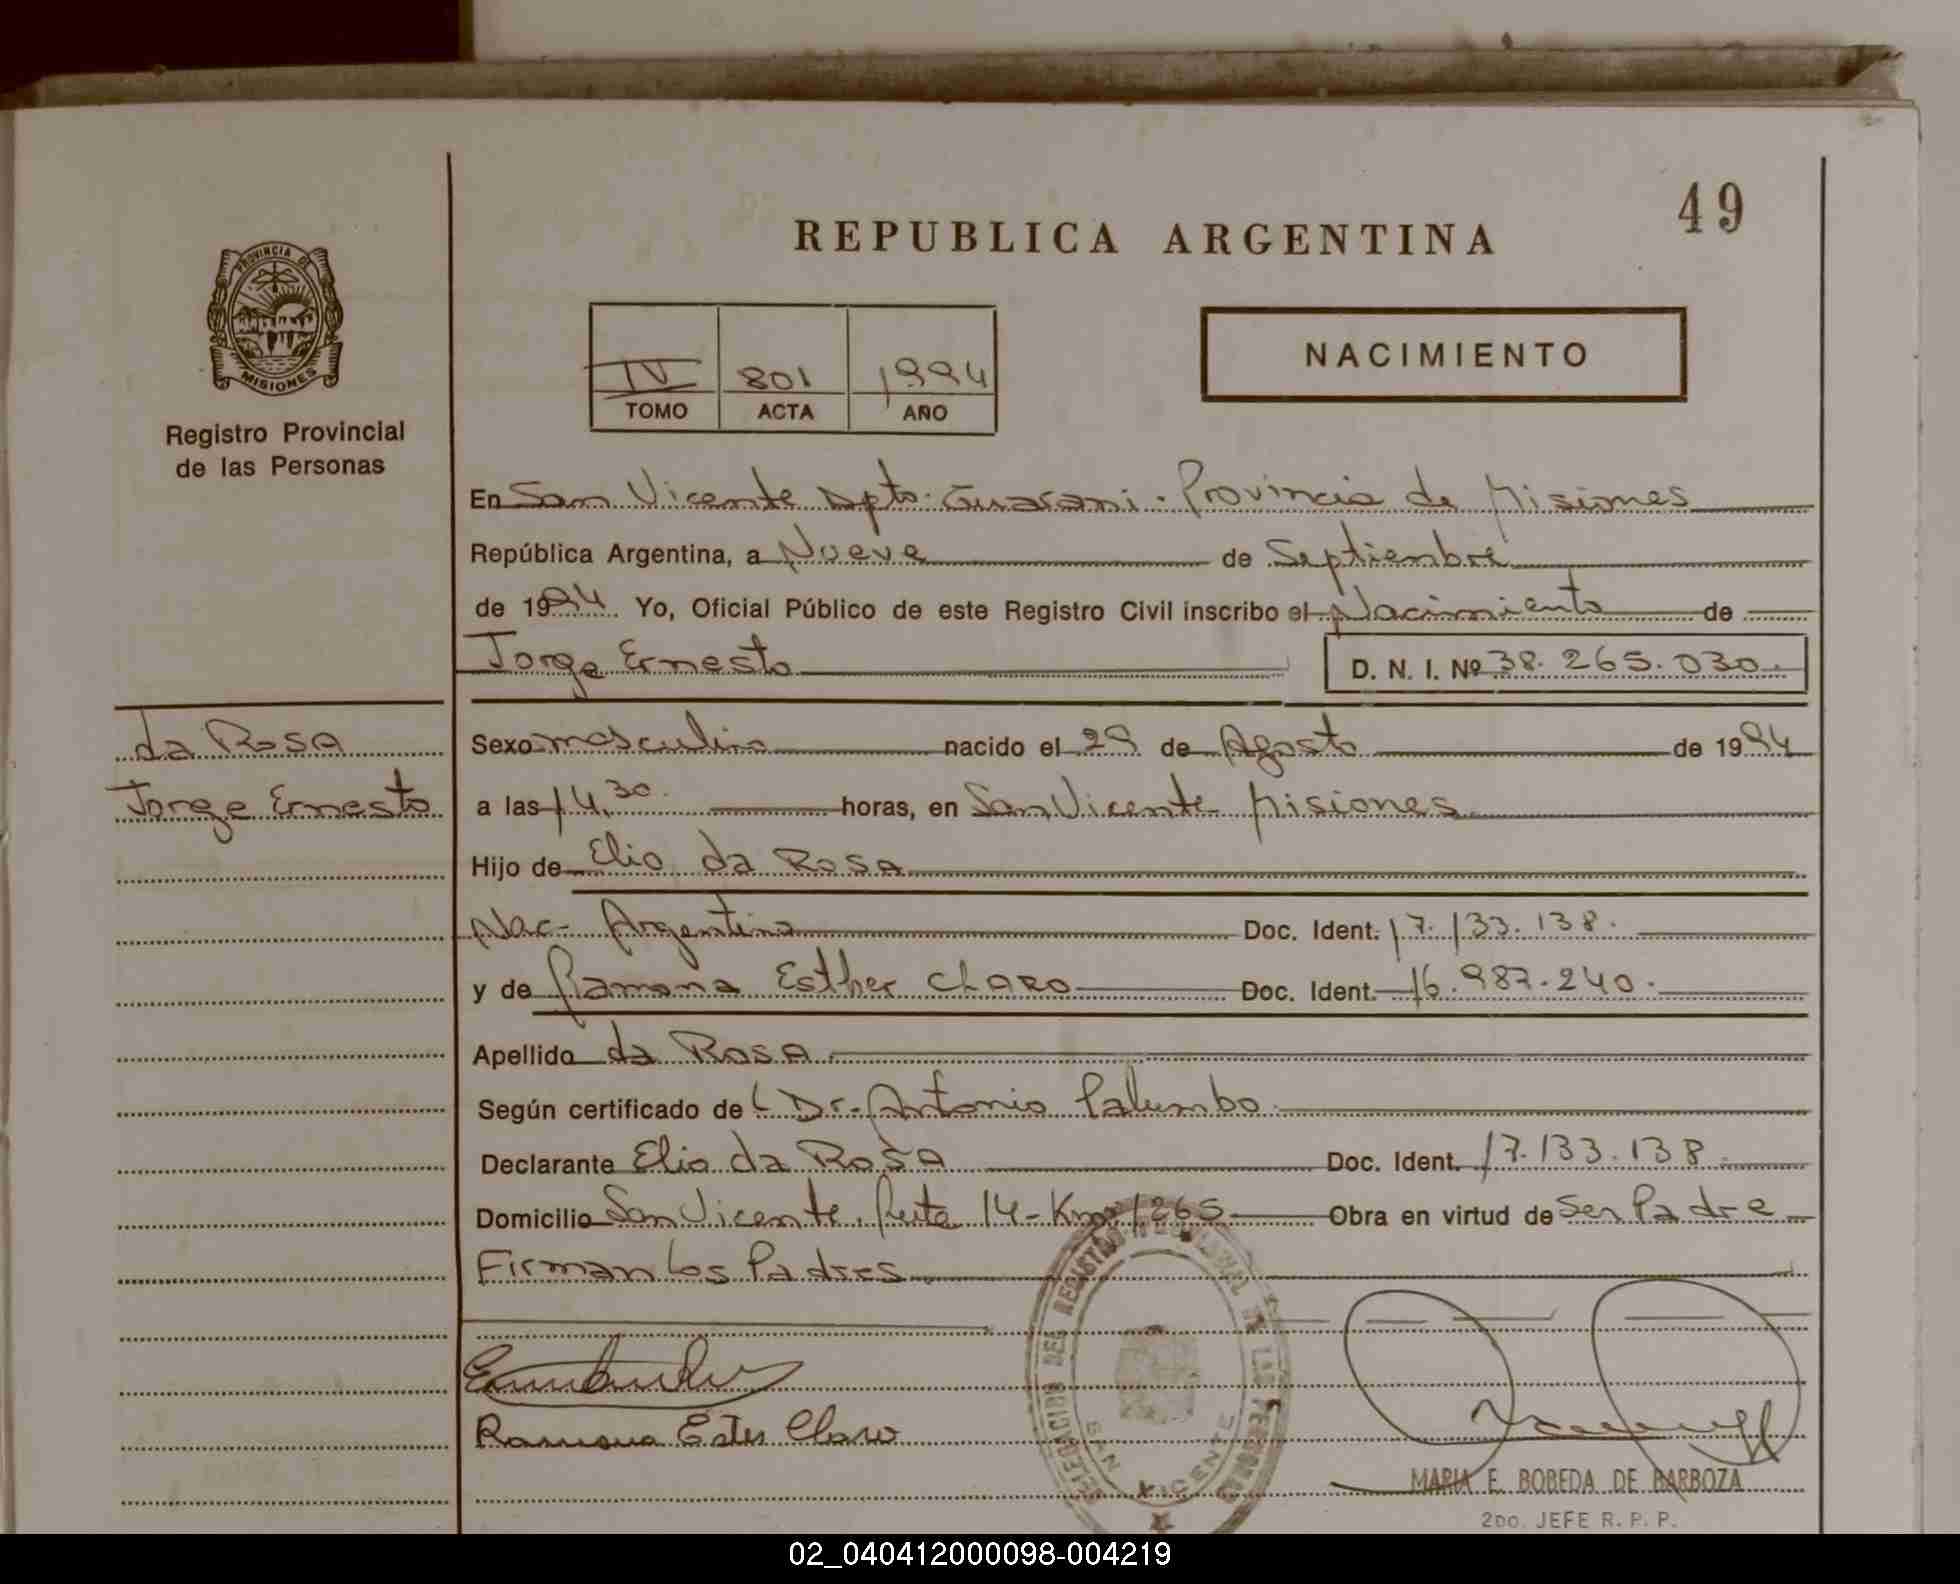 49
REPUBLICA ARGENTINA
PROVINCIA DE
MISIONES
Registro Provincial
de las Personas
IV 801 1994
TOMO ACTA AÑO
NACIMIENTO
En San Vicente Dpto. Guarani. Provincia de Misiones
República Argentina, a Nueve de Septiembre
de 1994 Yo, Oficial Público de este Registro Civil inscribo el Nacimiento de
Jorge Ernesto D. N. I. Nº 38.265.030.
da Rosa
Jorge Ernesto
Sexo masculino nacido el 29 de Agosto de 1994
a las 14,30 horas, en San Vicente Misiones
Hijo de Elio da Rosa
Nac- Argentina Doc. Ident. 17.133.138.
y de Ramona Esther CLARO Doc. Ident. 16.987.240.
Apellido da Rosa
Según certificado de Dr. Antonio Palumbo
Declarante Elio da Rosa Doc. Ident. 17.133.138
Domicilio San Vicente. Ruta 14- Km 1265 Obra en virtud de Ser Padre
Firman los Padres
Ramona Ester Claro
DELEGACION DEL REGISTRO PROVINCIAL DE LAS PERSONAS
SAN VICENTE
MARIA E. BOBEDA DE BARBOZA
2DO. JEFE R. P. P.
02_040412000098-004219